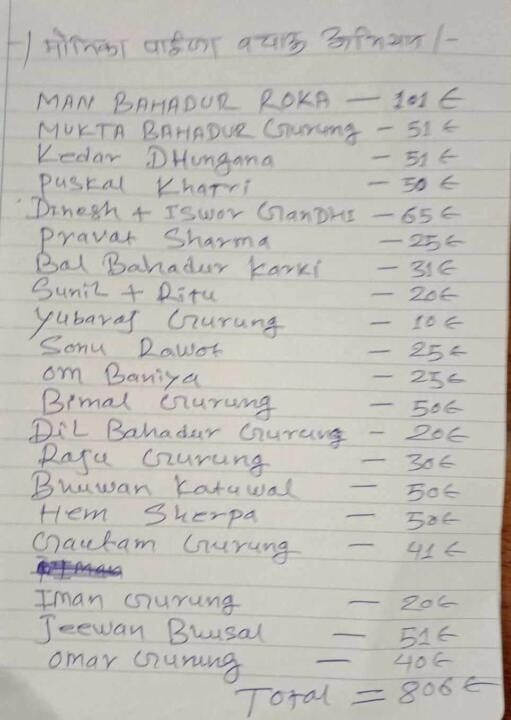 -) मोनिका पाईजा बचाऊ अभियान /-
MAN BAHADUR ROKA — 101 €
MUKTA BAHADUR Gurung - 51 €
Kedar DHungana - 51 €
Puskal Khatri - 50 €
Dinesh + ISwor GanDHI - 65 €
Pravat Sharma - 25 €
Bal Bahadur Karki - 31 €
Sunil + Ritu - 20 €
Yubaraj Gurung - 10 €
Sonu Rawot - 25 €
om Baniya - 25 €
Bimal Gurung - 50 €
DiL Bahadur Gurung - 20 €
Raju Gurung - 30 €
Bhuwan Katuwal - 50 €
Hem Sherpa - 50 €
Gautam Gurung - 41 €
Iman Gurung - 20 €
Jeewan Bhusal — 51 €
omar Gurung — 40 €
Total = 806 €